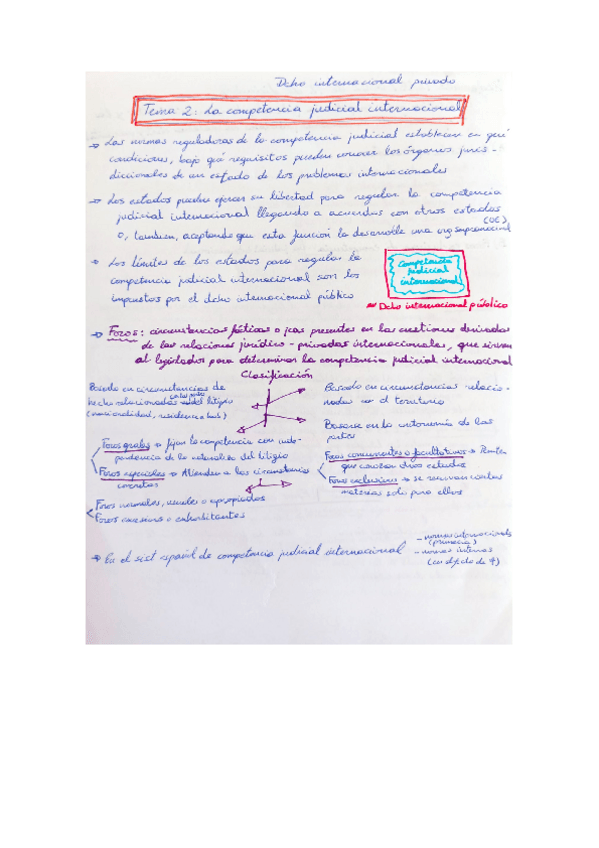 Dcho internacional privado
Tema 2: La competencia judicial internacional
→ Las normas reguladoras de la competencia judicial establecen en qué
condiciones, bajo qué requisitos pueden conocer los órganos juris-
diccionales de un estado de los problemas internacionales
→ Los estados pueden ejercer su libertad para regular la competencia
judicial internacional llegando a acuerdos con otros estados
o, también, aceptando que esta función la desarrolle una org supranacional
→ Los límites de los estados para regular la
competencia judicial internacional son los
impuestos por el dcho internacional público
Competencia
judicial
internacional
Dcho internacional público
→ Foros: circunstancias fácticas o jcas presentes en las cuestiones derivadas
de las relaciones jurídico-privadas internacionales, que sirven
al legislador para determinar la competencia judicial internacional
Clasificación
Basado en circunstancias de
hecho relacionadas del litigio
(nacionalidad, residencia)
Basado en circunstancias relacio-
nadas con el territorio
Basarse en la autonomía de las
partes
Foros grales → fijan la competencia con inde-
pendencia de la naturaleza del litigio
Foros especiales → Atienden a las circunstancias
concretas
Foros concurrentes o facultativos →
que conozcan otros estados
Foros exclusivos → se reservan ciertas
materias solo para ellos
Foros normales, usuales o apropiados
Foros excesivos o exhorbitantes
→ En el sist español de competencia judicial internacional
- normas internacionales
(primacía)
- normas internas